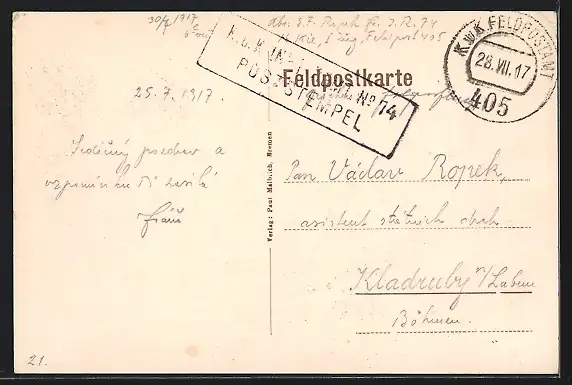 30/7 1917
Abs. E.F. Ropek Fr. J.R. 74
11. Kie, 1 Zug, Feldpost 405
K.u.K. INF. REGT. Nº 74
POSTSTEMPEL
K.u.K. FELDPOSTAMT
28.VII.17
405
Feldpostkarte
25.7.1917.
Srdečný pozdrav a
vzpomínku Ti zasílá
Verlag: Paul Malbrich, Bremen
Pan Václav Ropek,
asistent státních drah
Kladruby n/Labem
Böhmen.
21.